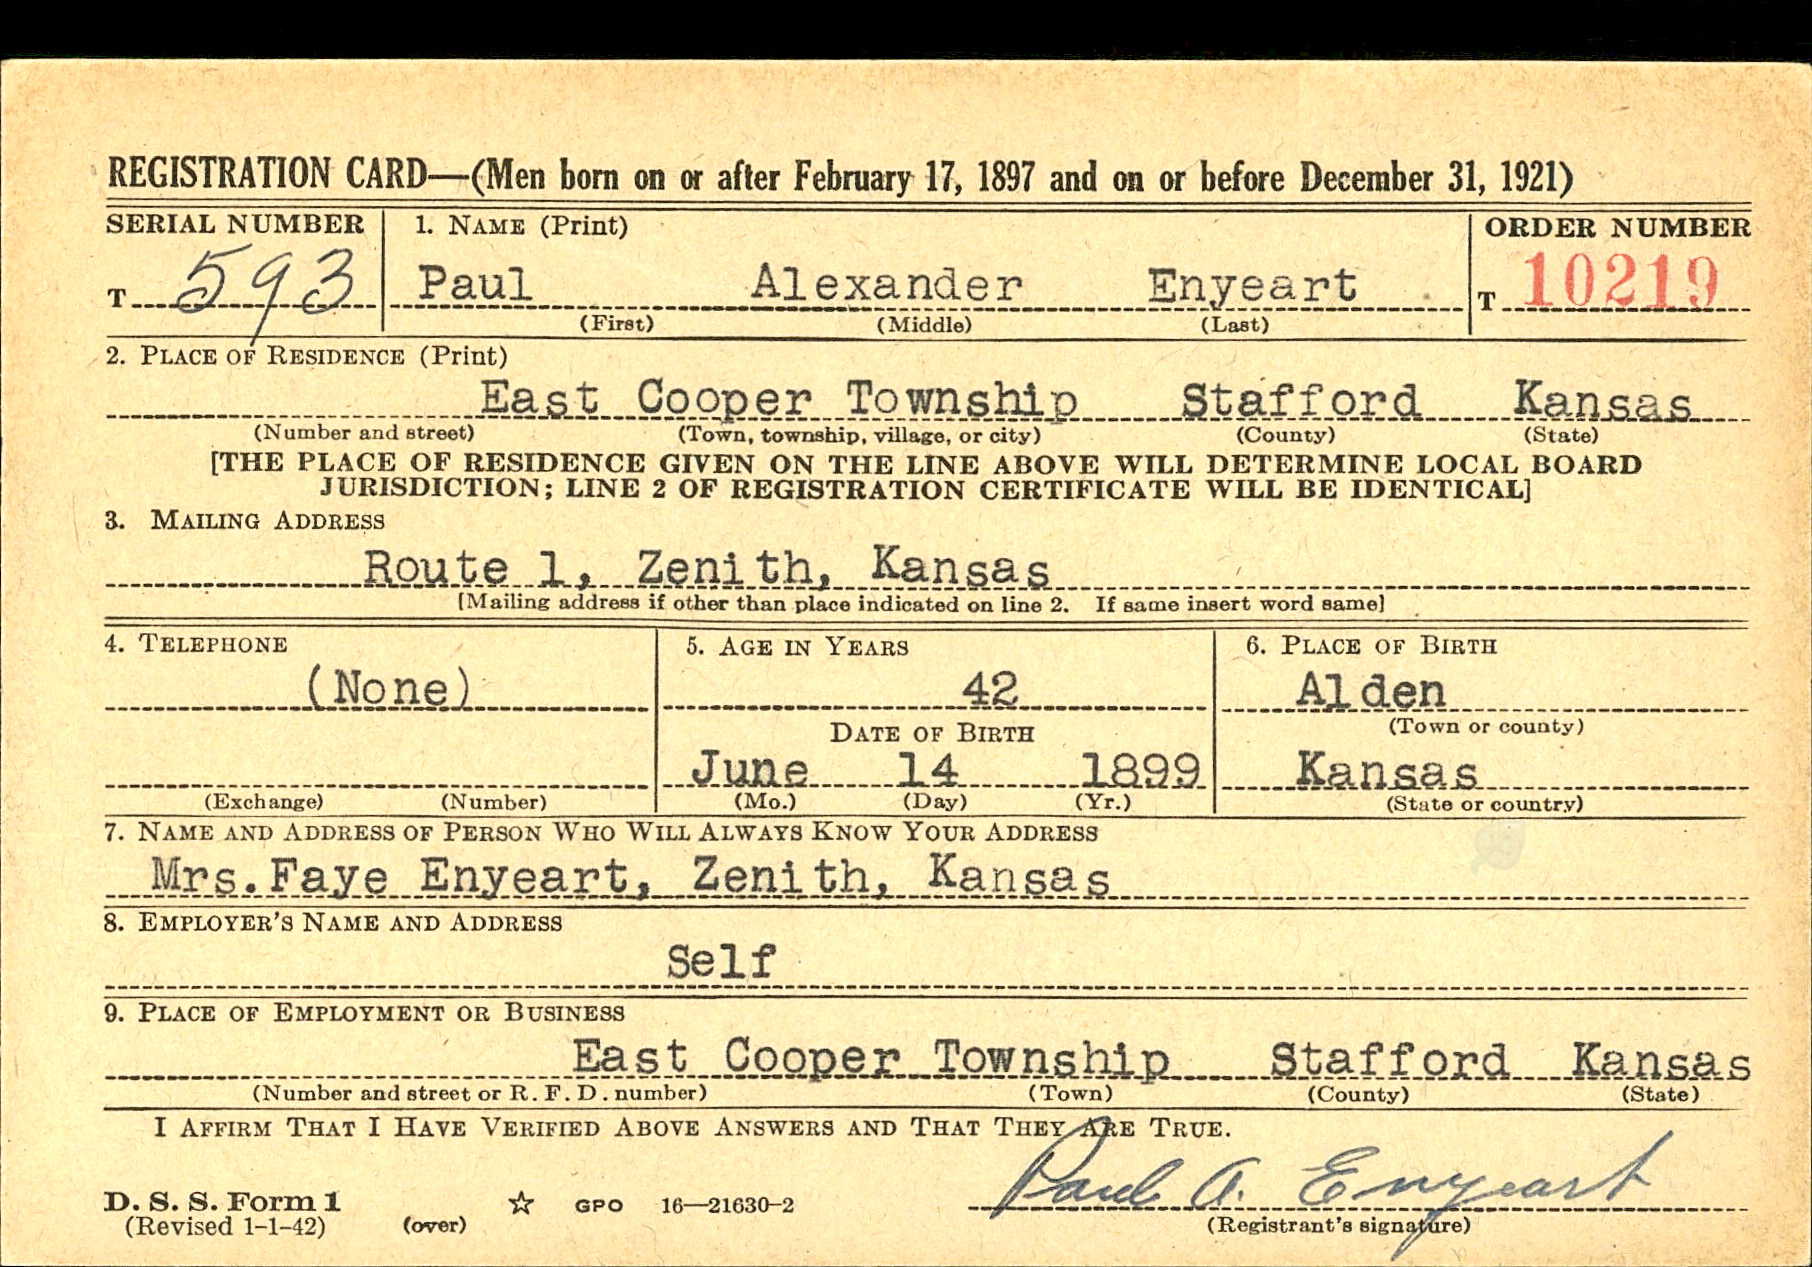 REGISTRATION CARD—(Men born on or after February 17, 1897 and on or before December 31, 1921)
SERIAL NUMBER 1. NAME (Print) ORDER NUMBER
T 593 Paul Alexander Enyeart T 10219
(First) (Middle) (Last)
2. PLACE OF RESIDENCE (Print)
East Cooper Township Stafford Kansas
(Number and street) (Town, township, village, or city) (County) (State)
[THE PLACE OF RESIDENCE GIVEN ON THE LINE ABOVE WILL DETERMINE LOCAL BOARD
JURISDICTION; LINE 2 OF REGISTRATION CERTIFICATE WILL BE IDENTICAL]
3. MAILING ADDRESS
Route 1, Zenith, Kansas
[Mailing address if other than place indicated on line 2. If same insert word same]
4. TELEPHONE 5. AGE IN YEARS 6. PLACE OF BIRTH
(None) 42 Alden
DATE OF BIRTH (Town or county)
June 14 1899 Kansas
(Exchange) (Number) (Mo.) (Day) (Yr.) (State or country)
7. NAME AND ADDRESS OF PERSON WHO WILL ALWAYS KNOW YOUR ADDRESS
Mrs. Faye Enyeart, Zenith, Kansas
8. EMPLOYER'S NAME AND ADDRESS
Self
9. PLACE OF EMPLOYMENT OR BUSINESS
East Cooper Township Stafford Kansas
(Number and street or R. F. D. number) (Town) (County) (State)
I AFFIRM THAT I HAVE VERIFIED ABOVE ANSWERS AND THAT THEY ARE TRUE.
Paul A. Enyeart
D. S. S. Form 1 ☆ GPO 16—21630-2
(Revised 1-1-42) (over) (Registrant's signature)